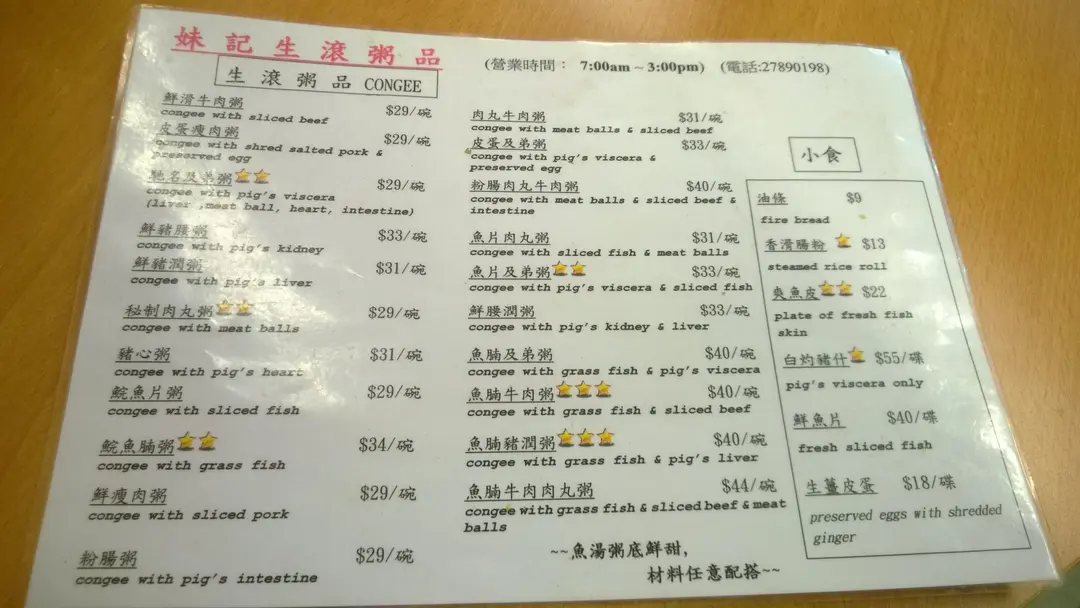 妹記生滾粥品
(營業時間： 7:00am ~ 3:00pm) (電話:27890198)
生滾粥品 CONGEE
鮮滑牛肉粥 $29/碗
congee with sliced beef
皮蛋瘦肉粥 $29/碗
congee with shred salted pork &
preserved egg
馳名及弟粥 $29/碗
congee with pig's viscera
(liver ,meat ball, heart, intestine)
鮮豬腰粥 $33/碗
congee with pig's kidney
鮮豬潤粥 $31/碗
congee with pig's liver
秘制肉丸粥 $29/碗
congee with meat balls
豬心粥 $31/碗
congee with pig's heart
鯇魚片粥 $29/碗
congee with sliced fish
鯇魚腩粥 $34/碗
congee with grass fish
鮮瘦肉粥 $29/碗
congee with sliced pork
粉腸粥 $29/碗
congee with pig's intestine
肉丸牛肉粥 $31/碗
congee with meat balls & sliced beef
皮蛋及弟粥 $33/碗
congee with pig's viscera &
preserved egg
粉腸肉丸牛肉粥 $40/碗
congee with meat balls & sliced beef &
intestine
魚片肉丸粥 $31/碗
congee with sliced fish & meat balls
魚片及弟粥 $33/碗
congee with pig's viscera & sliced fish
鮮腰潤粥 $33/碗
congee with pig's kidney & liver
魚腩及弟粥 $40/碗
congee with grass fish & pig's viscera
魚腩牛肉粥 $40/碗
congee with grass fish & sliced beef
魚腩豬潤粥 $40/碗
congee with grass fish & pig's liver
魚腩牛肉肉丸粥 $44/碗
congee with grass fish & sliced beef & meat
balls
~~魚湯粥底鮮甜,
材料任意配搭~~
小食
油條 $9
fire bread
香滑腸粉 $13
steamed rice roll
爽魚皮 $22
plate of fresh fish
skin
白灼豬什 $55/碟
pig's viscera only
鮮魚片 $40/碟
fresh sliced fish
生薑皮蛋 $18/碟
preserved eggs with shredded
ginger